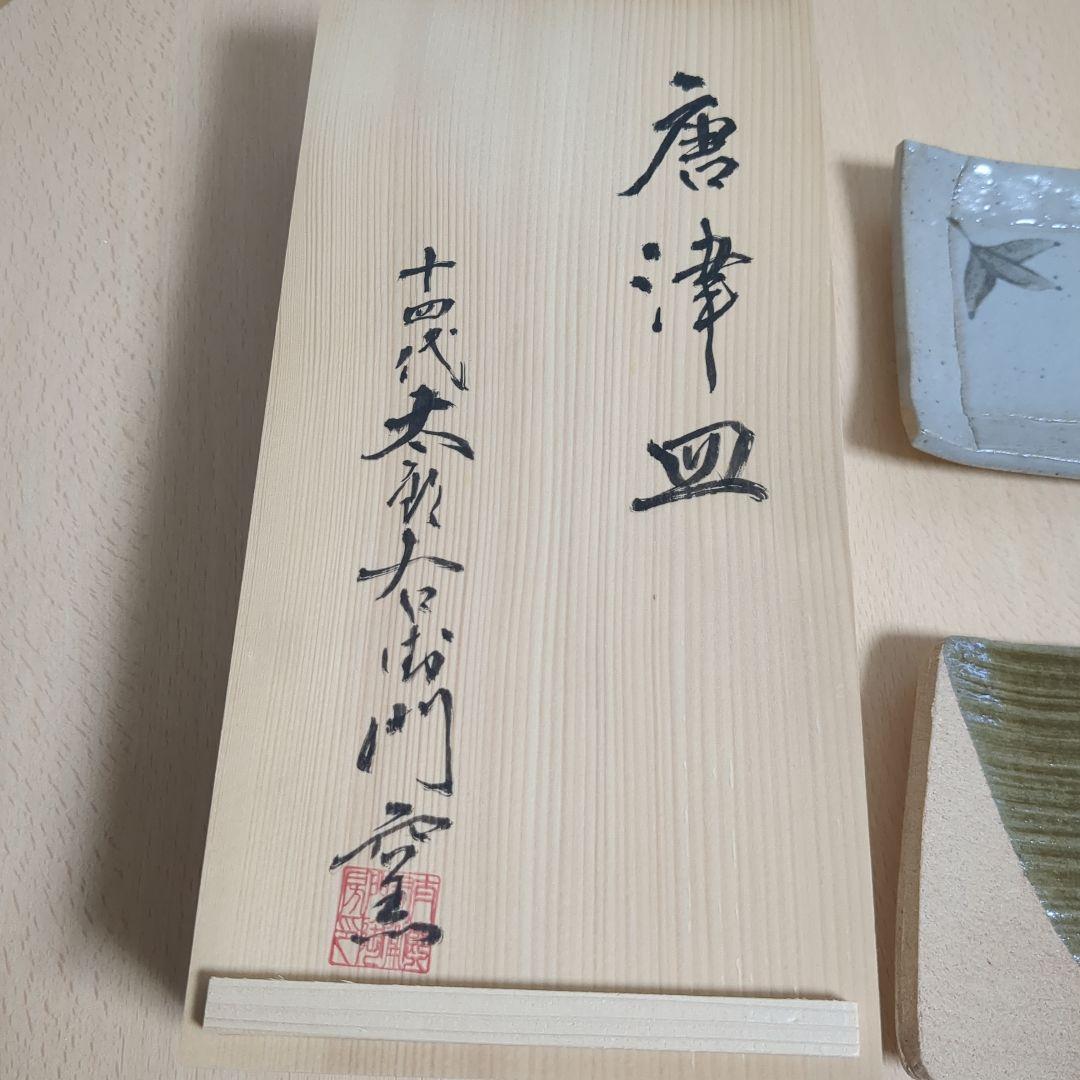 唐津皿
十四代太郎右衛門窯